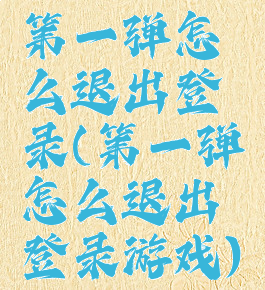 第一弹怎
么退出登
录(第一弹
怎么退出
登录游戏)